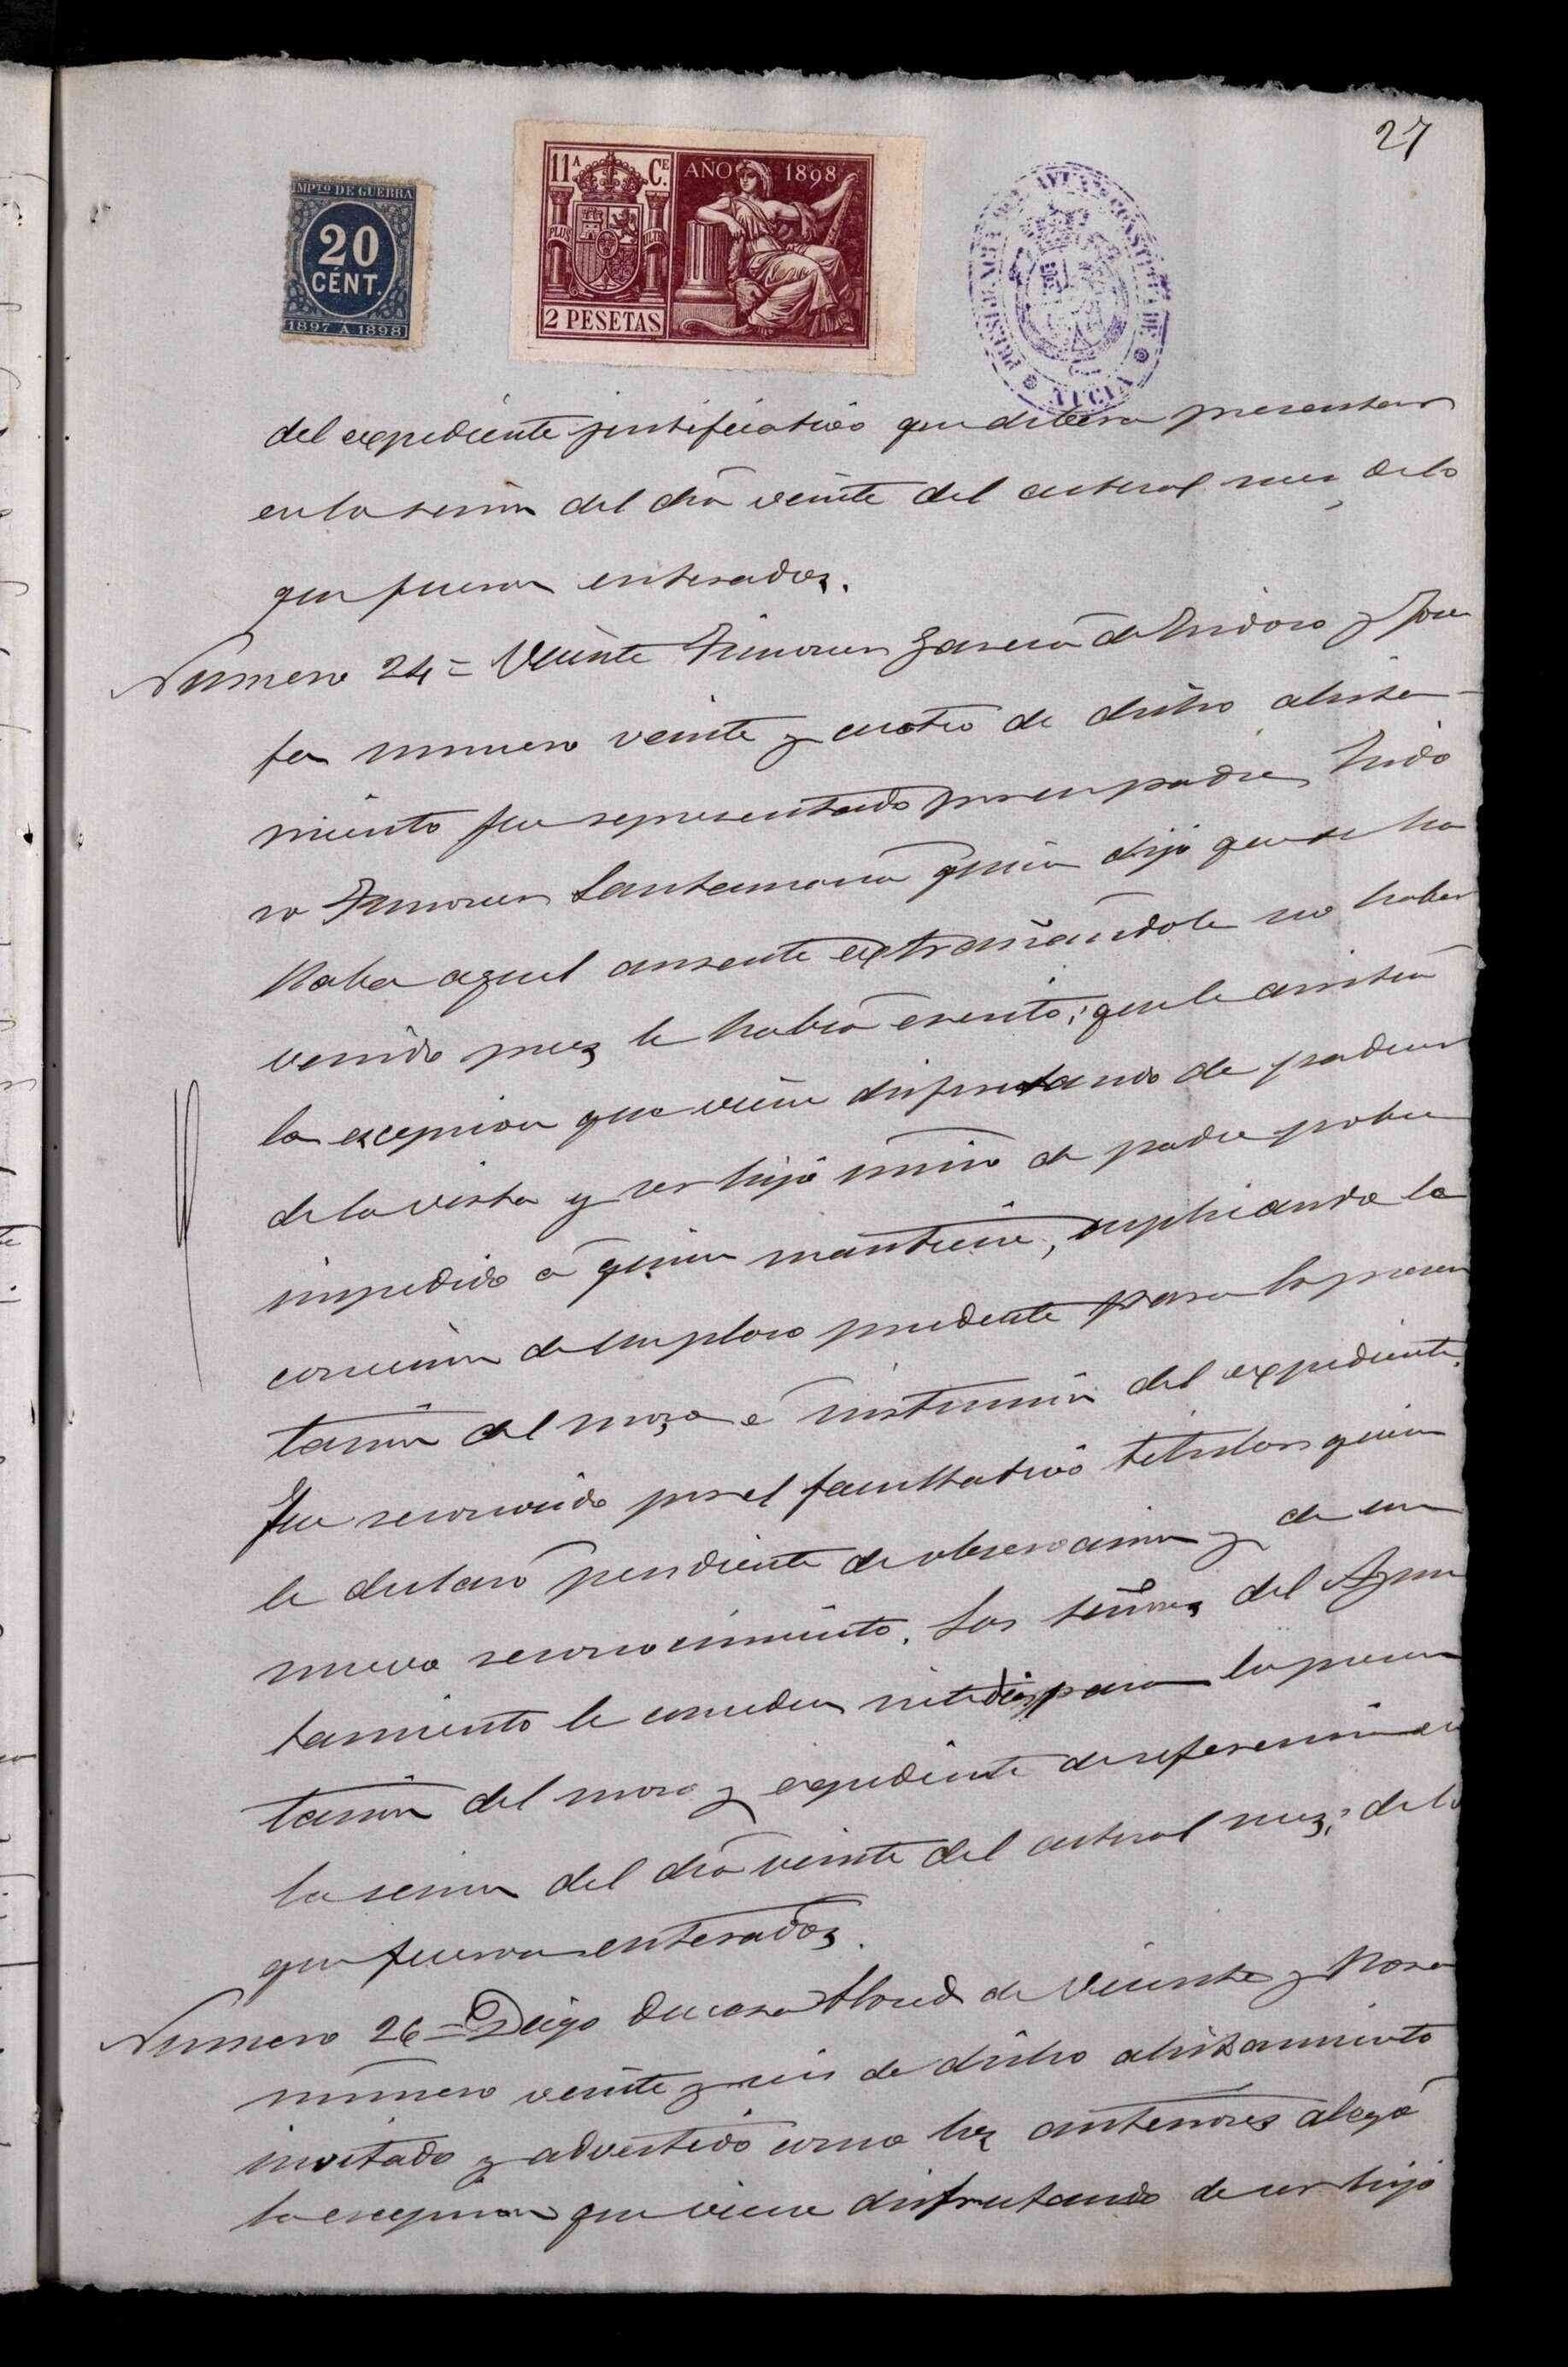 27
IMPTO DE GUERRA
20
CÉNT.
1897 A 1898
11A CE.
AÑO 1898
PLUS ULTRA
2 PESETAS
PRESIDENCIA DEL AYTO CONSTITL DE
del expediente justificativo que debera presentar
en la sesion del dia veinte del actual mes, de lo
que fueron enterados.
Numero 24 = Vicente Garcia de Isidoro y Jose
fa numero veinte y cuatro de dicho alista-
miento fue representado por su padre Isido
ro Santamaria quien dijo que se ha
llaba aquel ausente extrañandole no haber
venido pues le habia escrito; que le asistia
la escepcion que viene disfrutando de padecer
de la vista y ser hijo unico de padre pobre
impedido á quien mantiene, suplicando la
concesion de un plazo prudente para la presen
tacion del mozo é instruccion del expediente.
Fue reconocido por el facultativo titular quien
le declaró pendiente de observacion y de un
nuevo reconocimiento. Los señores del Ayun
tamiento le conceden siete dias para la presen
tacion del mozo y expediente de referencia en
la sesion del dia veinte del actual mes; de lo
que fueron enterados.
Numero 26 = Diego de Vicente y Rosa
numero veinte y seis de dicho alistamiento
invitado y advertido como los anteriores alegó
la escepcion que viene disfrutando de ser hijo